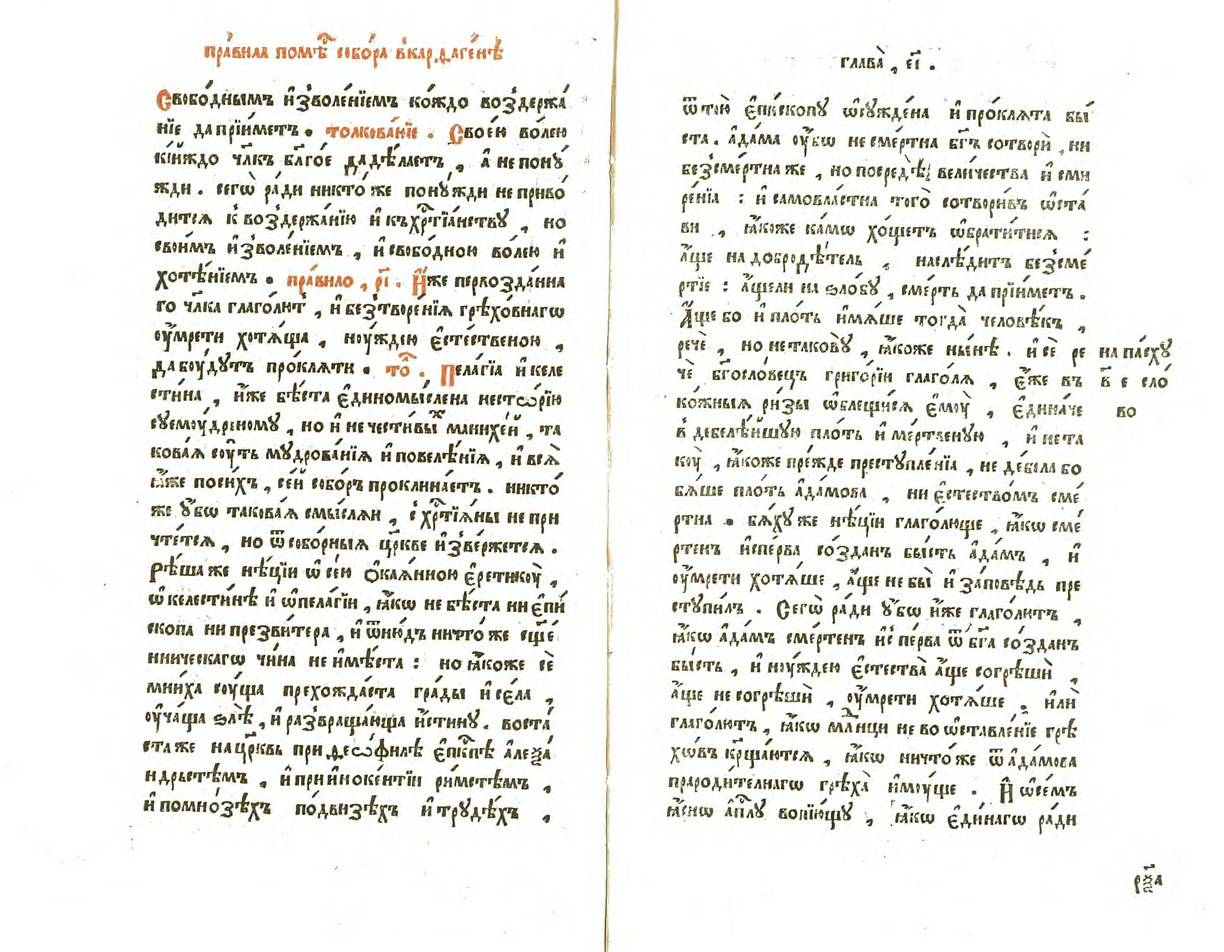 пра́вила помѣ́ст собо́ра в̾карѳаге́нѣ
Свобо́днымъ и҆зволе́нїемъ ко́ждо воздержа́
нїе да прїи́метъ . толкова́нїе . Свое́ю во́лею
кїи́ждо чл҃къ бл҃го́е да дѣ́лаетъ , а҆ не пону́
жди . сегѡ̀ ра́ди никто́ же пону́жди не приво́
дитсѧ к̾ воздержа́нїю и҆ къ хр҃тїа́нству , но
свои́мъ и҆зволе́нїемъ , и҆ свобо́дною во́лею и҆
хотѣ́нїемъ . пра́вило , рі҃ . И҆́же первозда́нна
го чл҃ка глаго́лют , и҆ без̾творе́нїѧ грѣхо́внагѡ
оу҆мрети хотѧ́ща , ноу́ждею є҆сте́ственою ,
да бу́дутъ про́клѧти . то́л . Пела́гїа и҆ келе
сти́на , и҆̀же бѣ́ста є҆диномы́слена несто́рїю
суемꙋ́дреному , но и҆ нечести́вы́х манихе́й , та
кова́ѧ сꙋ́ть мудрова́нїѧ и҆ повелѣ́нїѧ , и҆ всѧ̀
ꙗ҆̀же поси́хъ , се́й собо́ръ проклина́етъ . никто́
же ᲂу҆́бѡ такова́ѧ смы́слѧи , с хр҃тїѧ́ны не при
чте́тсѧ , но ѿ собо́рныѧ цр҃кве и҆зве́ржетсѧ .
Рѣ́ша же нѣ́цїи ѡ҆ сею̀ Ѻ҆каѧ́нною є҆ретикꙋ̀ ,
ѡ҆ келести́нѣ и҆ ѡ҆ пела́гїи , ꙗ҆́кѡ не бѣ́ста ни є҆пи́
скопа ни презви́тера , и҆ ѿню́дъ ничто́ же сщ҃е́
нническагѡ чи́на не и҆мѣ́ста : но ꙗ҆́коже сѐ
мни́ха сꙋ́ща прехожда́ста гра́ды и҆ се́ла ,
оу҆ча́ща ѕлѣ̀ , и҆ развраща́юща и҆́стину . воста́
ста же на цр҃квь при ѳео́филѣ є҆пи́кпѣ алеѯа́
ндрьстѣ́мъ , и҆ при и҆ноке́нтїи ри́мстѣмъ ,
и҆ помно́зѣхъ по́двизѣхъ и҆ трудѣ́хъ ,
глава̀ , еі҃ .
ѿ тою̀ є҆пи́скопу ѡ҆суждена̀ и҆ про́клѧта бы́
ста . а҆да́ма ᲂу҆́бѡ не сме́ртна бг҃ъ сотворѝ , ни
безсме́ртна же , но посредѣ̀ вели́чества и҆ сми
ре́нїа : и҆ самовла́стна того̀ сотвори́въ ѡ҆ста́
ви , ꙗ҆́коже ка́мѡ хо́щетъ ѡ҆брати́тисѧ :
а҆́ще на доброде́тѣль , наслѣ́дитъ безсме́
ртїе : а҆́щели на ѕло́бу , сме́рть да прїи́метъ .
А҆́ще бо и҆ пло́ть и҆мѧ́ше тогда̀ человѣ́къ ,
речѐ , но не такову̀ , ꙗ҆́коже ны́нѣ . и҆ сѐ ре
чѐ бг҃осло́вецъ григо́рїи глаго́лѧ , є҆́же въ
ко́жныѧ ри́зы ѡ҆блещи́сѧ є҆мꙋ̀ , є҆дина́че
в̾ дебелѣ́йшую пло́ть и҆ ме́ртвеную , и҆ не та
кꙋ̀ , ꙗ҆́коже пре́жде преступле́нїа , не дебола бо
бѧ́ше пло́ть а҆да́мова , ни є҆стество́мъ сме́
ртна . бѧ́ху же нѣ́цїи глаго́люще , ꙗ҆́кѡ сме́
ртенъ и҆спе́рва со́зданъ бы́сть а҆да́мъ , и҆
оу҆мре́ти хотѧ́ше , а҆́ще не бы̀ и҆ за́повѣдь пре
ступи́лъ . Сегѡ̀ ра́ди ᲂу҆́бѡ и҆́же глаго́лютъ ,
ꙗ҆́кѡ а҆да́мъ сме́ртенъ и҆с пе́рва ѿ бг҃а со́зданъ
бы́сть , и҆ нꙋ́ждею є҆стества̀ а҆́ще согрѣшѝ ,
а҆́ще не согрѣшѝ , оу҆мре́ти хотѧ́ше . и҆лѝ
глаго́лютъ , ꙗ҆́кѡ млⷣнци не во ѡ҆ставле́нїе грѣ
хѡ́въ кр҃ща́ютсѧ , ꙗ҆́кѡ ничто́же ѿ а҆да́мова
прароди́телнагѡ грѣха̀ и҆мꙋ́ще . И҆ ѡ҆ се́мъ
ꙗ҆́снѡ а҆пⷭ҇лу вопїю́щу , ꙗ҆́кѡ є҆ди́нагѡ ра́ди
на па́сху
в҃ е сло́
во
рѯ҃а